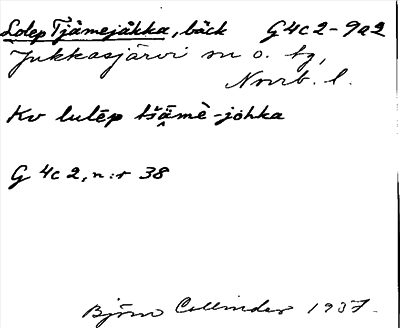 Lolep Tjåmejåkka, bäck G4c2-9a2
Jukkasjärvi sn o. tg,
Norrb. l.
Kv lulēp tšāmè-johka
G 4c 2, n:r 38
Björn Collinder 1937.